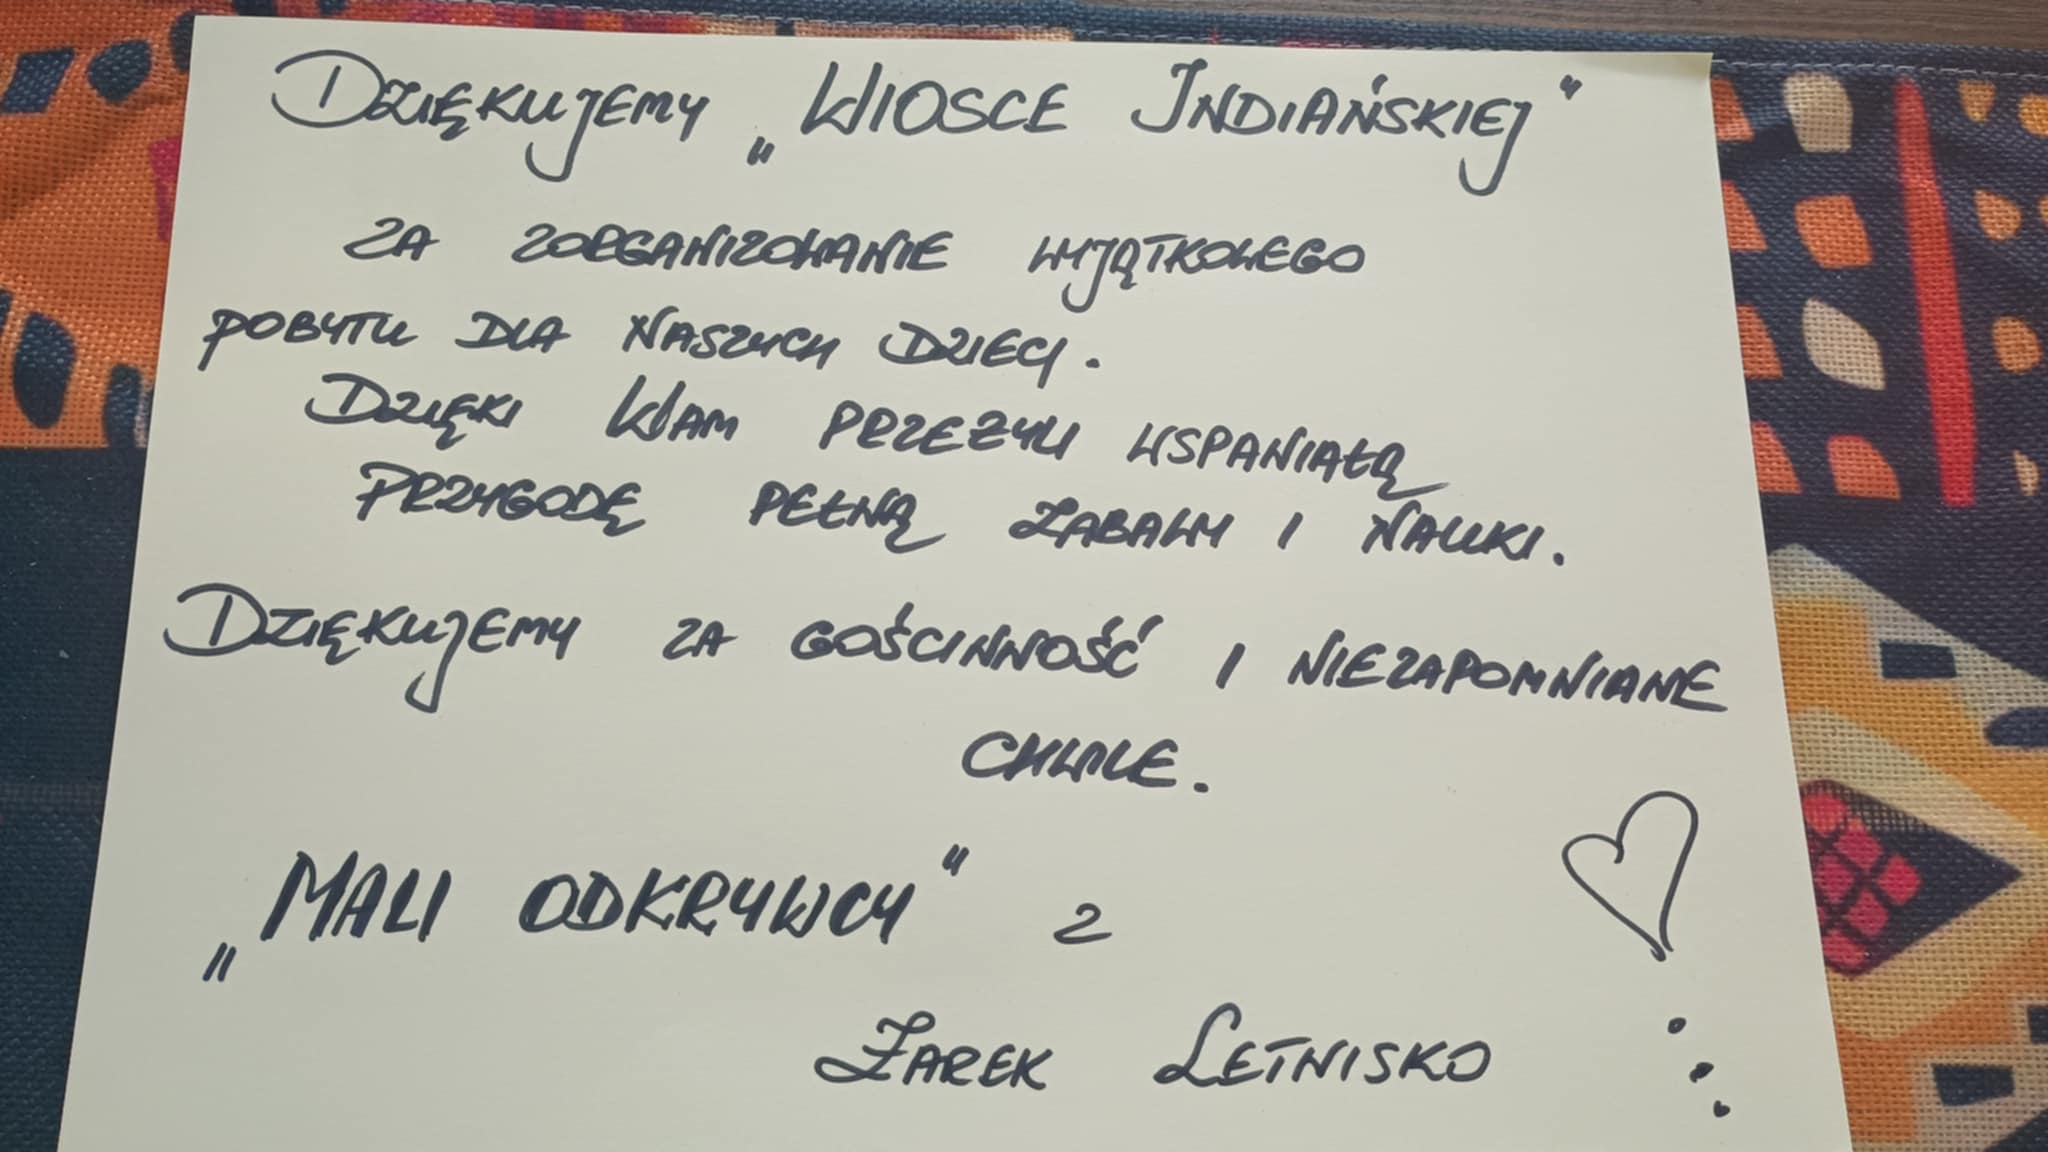 Dziękujemy „Wiosce Indiańskiej"
za zorganizowanie wyjątkowego
pobytu dla naszych dzieci.
Dzięki Wam przeżyli wspaniałą
przygodę pełną zabawy i nauki.
Dziękujemy za gościnność i niezapomniane
chwile.
„MALI ODKRYWCY" z
Żarek Letnisko